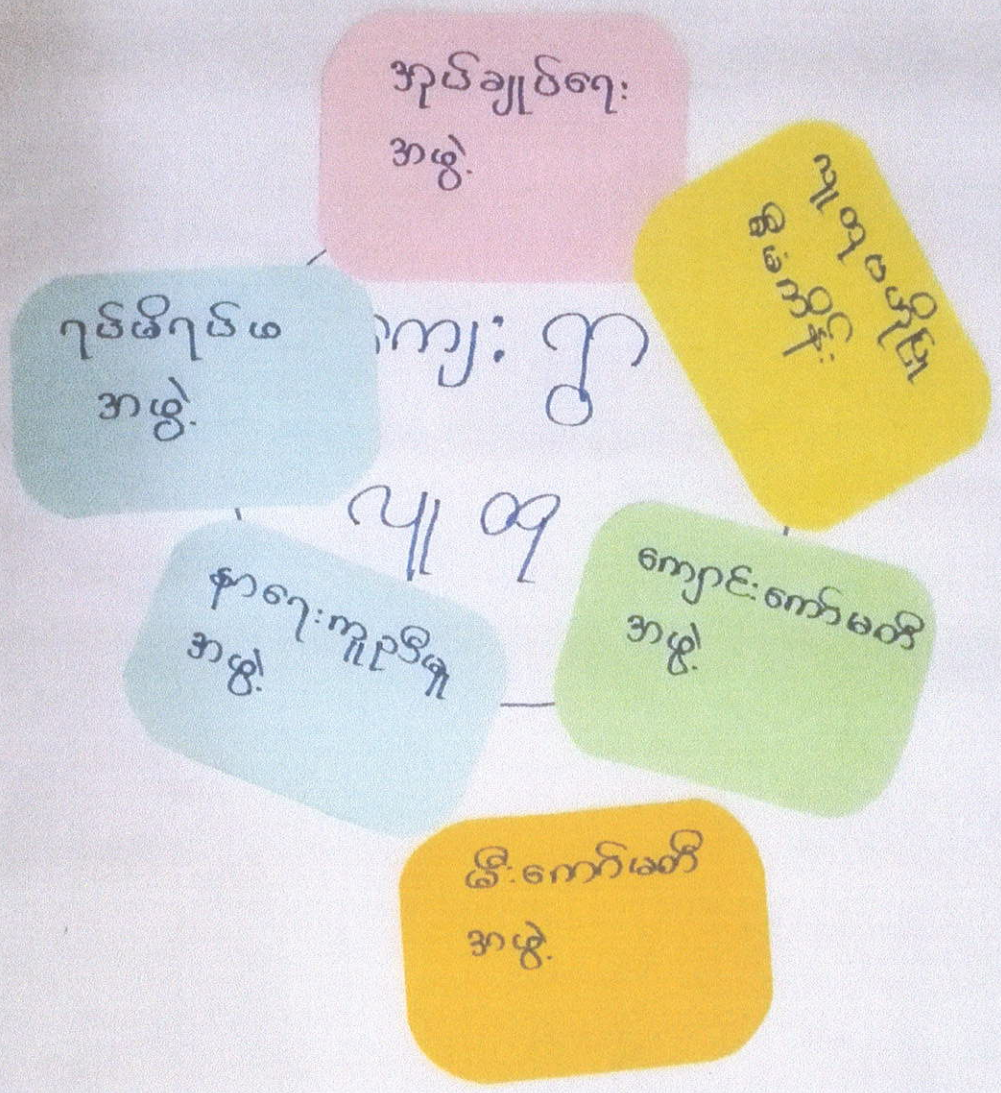 အုပ်ချုပ်ရေး
အဖွဲ့
လူထုဗဟိုပြု
စီမံကိန်း
ရပ်မိရပ်ဖ
အဖွဲ့
ကျေး ရွာ
လူ ထု
နာရေးကူညီမှု
အဖွဲ့
ကျောင်းကော်မတီ
အဖွဲ့
မီးကော်မတီ
အဖွဲ့